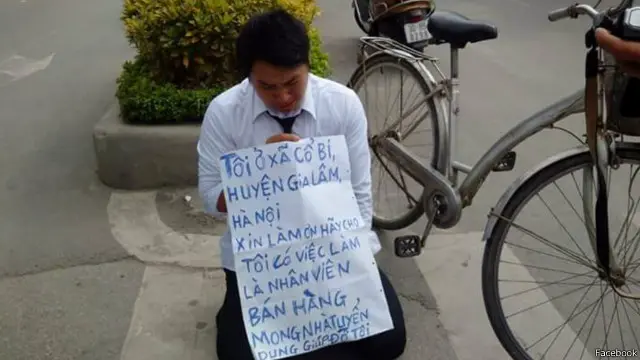 TÔI Ở XÃ CỔ BI,
HUYỆN GIA LÂM,
HÀ NỘI
XIN LÀM ƠN HÃY CHO
TÔI CÓ VIỆC LÀM
LÀ NHÂN VIÊN
BÁN HÀNG,
MONG NHÀ TUYỂN
DỤNG GIÚP ĐỠ TÔI
Facebook